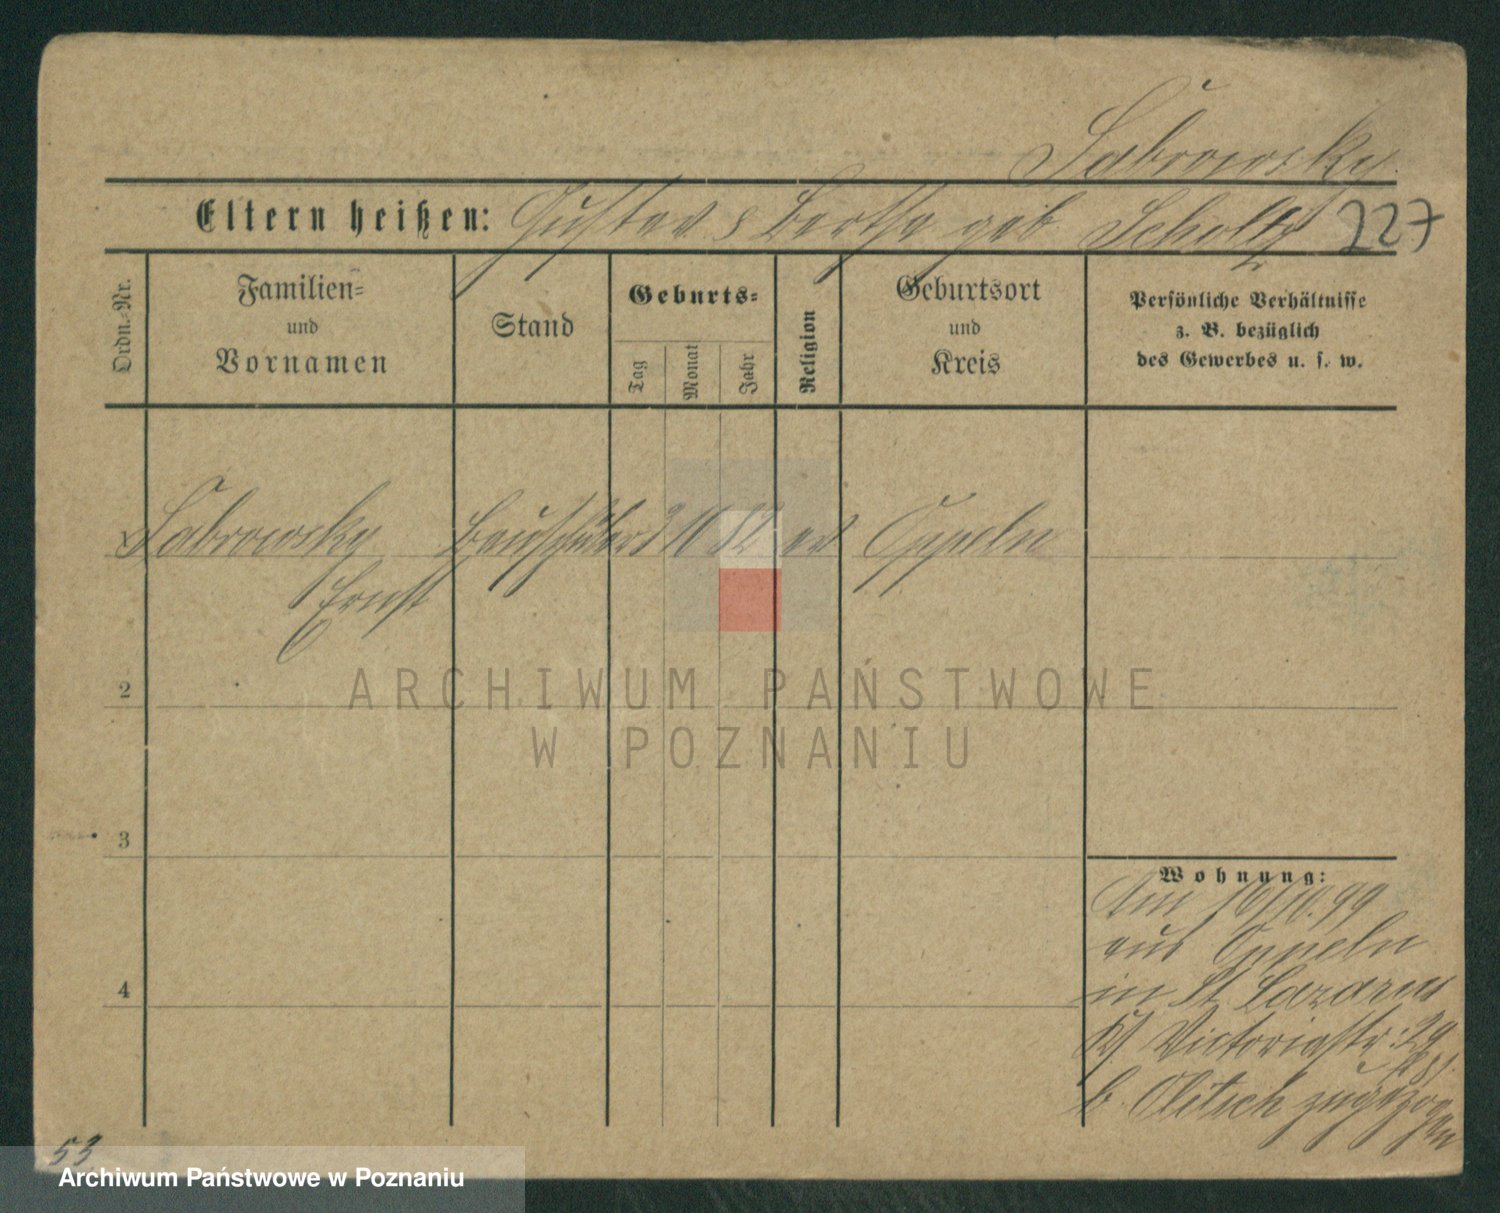 Sabrowsky
Eltern heißen: Gustav & Bertha geb Scholtz 227
Ordn.-Nr.
Familien-
und
Vornamen
Stand
Geburts-
Tag
Monat
Jahr
Religion
Geburtsort
und
Kreis
Persönliche Verhältnisse
z. B. bezüglich
des Gewerbes u. s. w.
1 Sabrowsky Bauschüler 3 10 82 ev Oppeln
Ernst
2
ARCHIWUM PAŃSTWOWE
W POZNANIU
3
Wohnung:
Am 16/10.99
aus Oppeln
in St Lazarus
Victoriastr: 29
b. Olitsch zugezogen
4
53
Archiwum Państwowe w Poznaniu